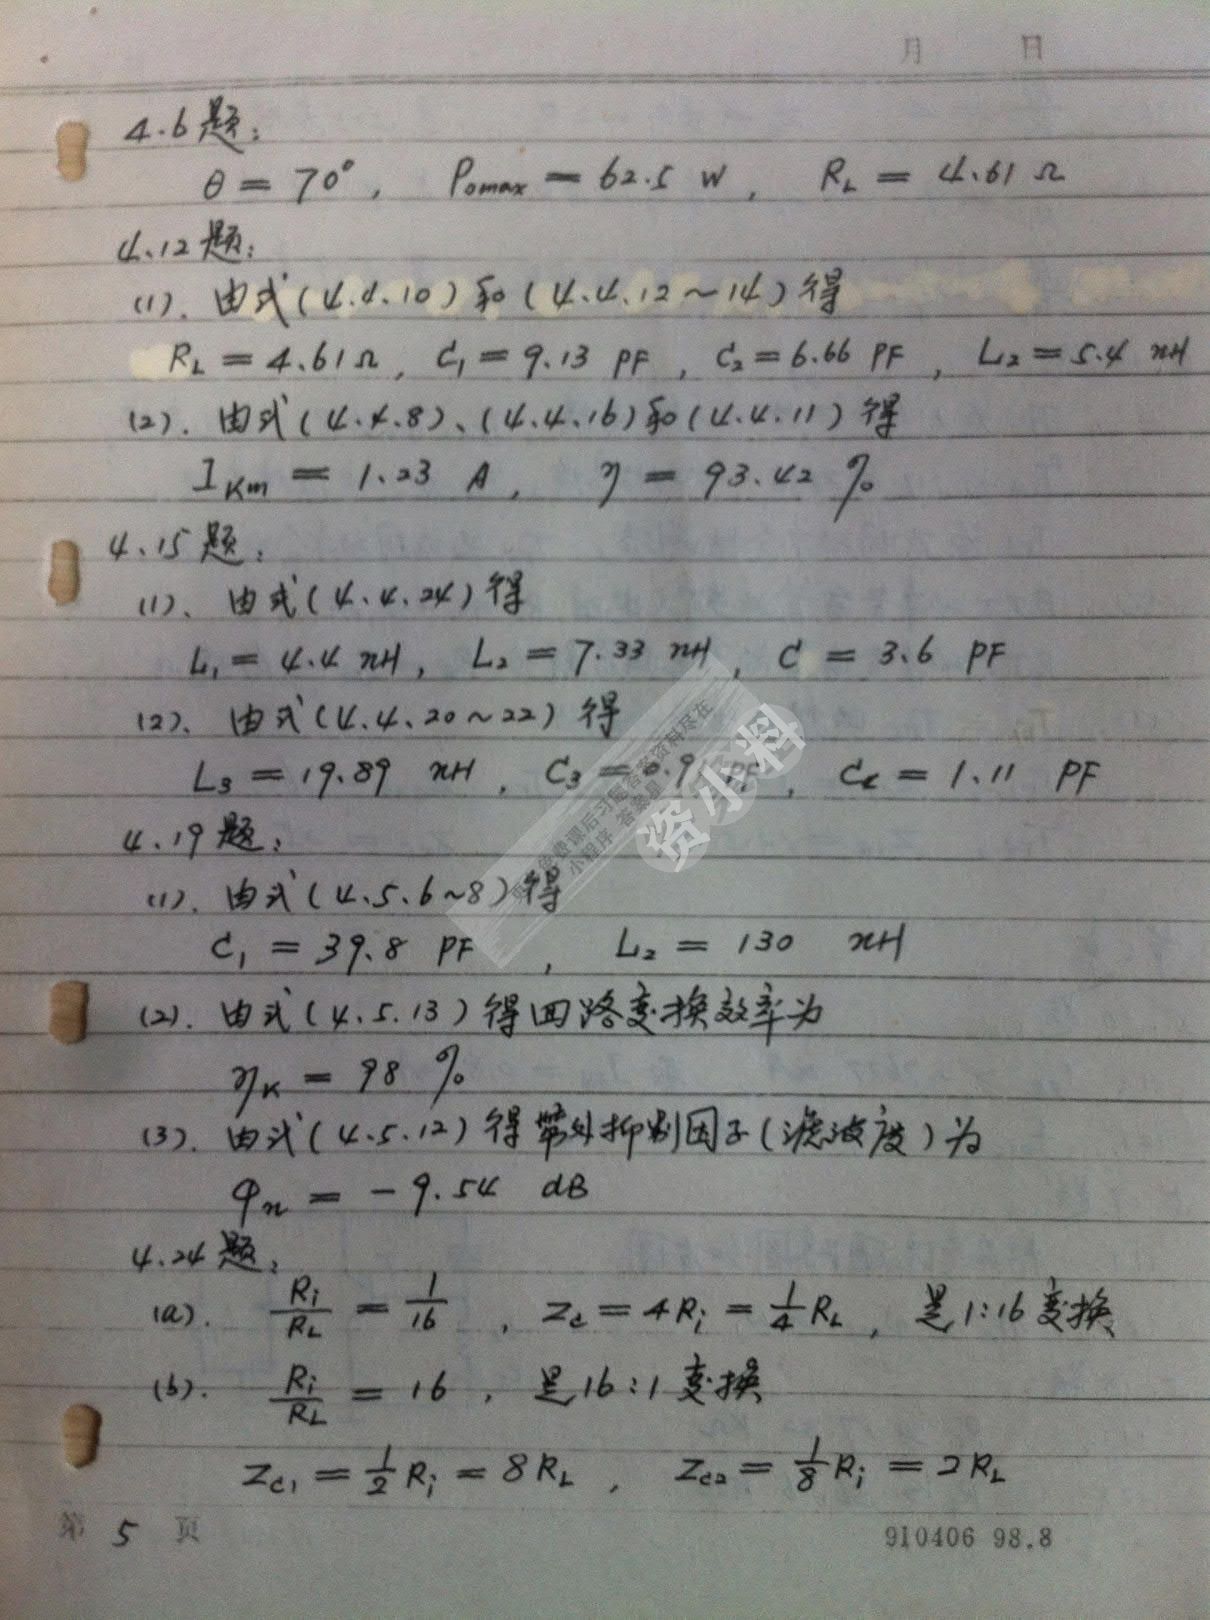 月 日
4.6题:
θ = 70°, Pomax = 62.5 W, RL = 4.61 Ω
4.12题:
(1). 由式(4.4.10)和(4.4.12~14)得
RL = 4.61Ω, C1 = 9.13 PF, C2 = 6.66 PF, L2 = 5.4 nH
(2). 由式(4.4.8)、(4.4.16)和(4.4.11)得
IKm = 1.23 A, η = 93.42 %
4.15题:
(1). 由式(4.4.24)得
L1 = 4.4 nH, L2 = 7.33 nH, C = 3.6 PF
(2). 由式(4.4.20~22)得
L3 = 19.89 nH, C3 = PF, = 1.11 PF
4.19题:
(1). 由式(4.5.6~8)得
C1 = 39.8 PF, L2 = 130 nH
(2). 由式(4.5.13)得回路变换效率为
ηK = 98 %
(3). 由式(4.5.12)得带外抑制因子(滤波度)为
φn = -9.54 dB
4.24题:
(a). Ri/RL = 1/16, Zc = 4Ri = 1/4 RL, 是1:16变换
(b). Ri/RL = 16, 是16:1变换
Zc1 = 1/2 Ri = 8RL, Zc2 = 1/8 Ri = 2RL
第 5 页
910406 98.8
免费课后习题答案资料尽在
小程序 答案星
资小料